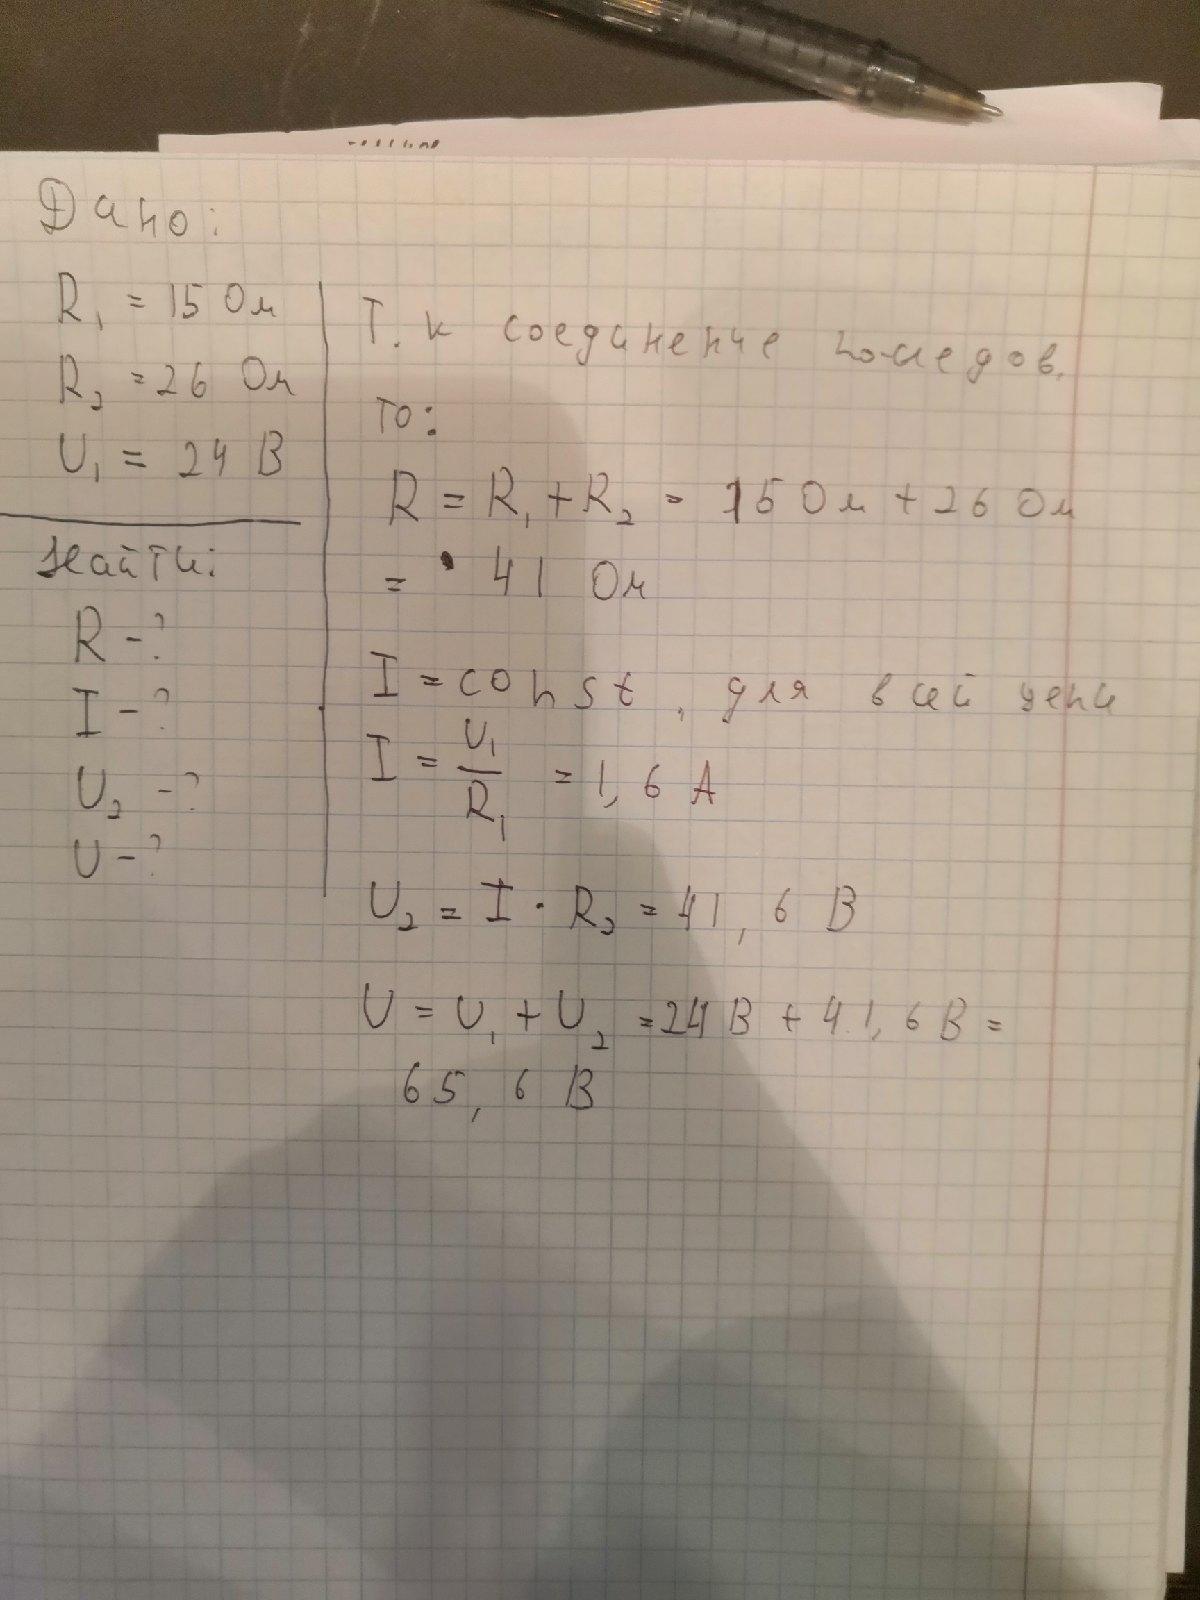 Дано:
R₁ = 15 Ом
R₂ = 26 Ом
U₁ = 24 В
Найти:
R - ?
I - ?
U₂ - ?
U - ?
Т. к соединение последов.
то:
R = R₁ + R₂ = 15 Ом + 26 Ом
= 41 Ом
I = const, для всей цепи
I = U₁/R₁ = 1,6 А
U₂ = I · R₂ = 41,6 В
U = U₁ + U₂ = 24 В + 41,6 В =
65,6 В